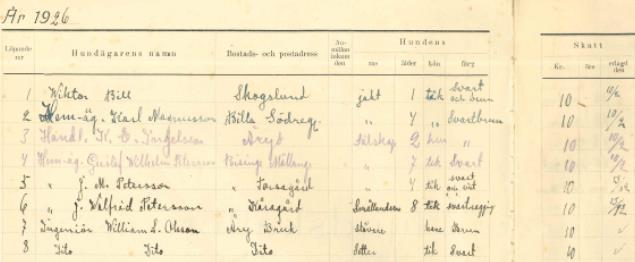 År 1926
Löpande nr Hundägarens namn Bostads- och postadress An- mälan inkom den Hundens Skatt
ras ålder kön färg Kr. öre erlagd den
1 Wiktor Bill Skogslund jakt 1 tik Svart och brun 10 10/2
2 Hem-äg. Karl Magnusson Billa Södreg. " 4 " Svartbrun 10 10/2
3 Handl. K. E. Ingelsson Äryd Sälskap 2 hun " 10 10/2
4 Hem-äg. Gustaf Wilhelm Petersson Målläng " 7 tik Svart 10 10/2
5 " J. M. Petersson " Torsagård " 4 tik svart och vit 10
6 " J. Walfrid Petersson " Kårsagård 8 tik 10
7 Ingeniör William L. Olsson Äry Bruk stövare hane Brun 10 ✓
8 Dito Dito Dito Setter tik Svart 10 ✓